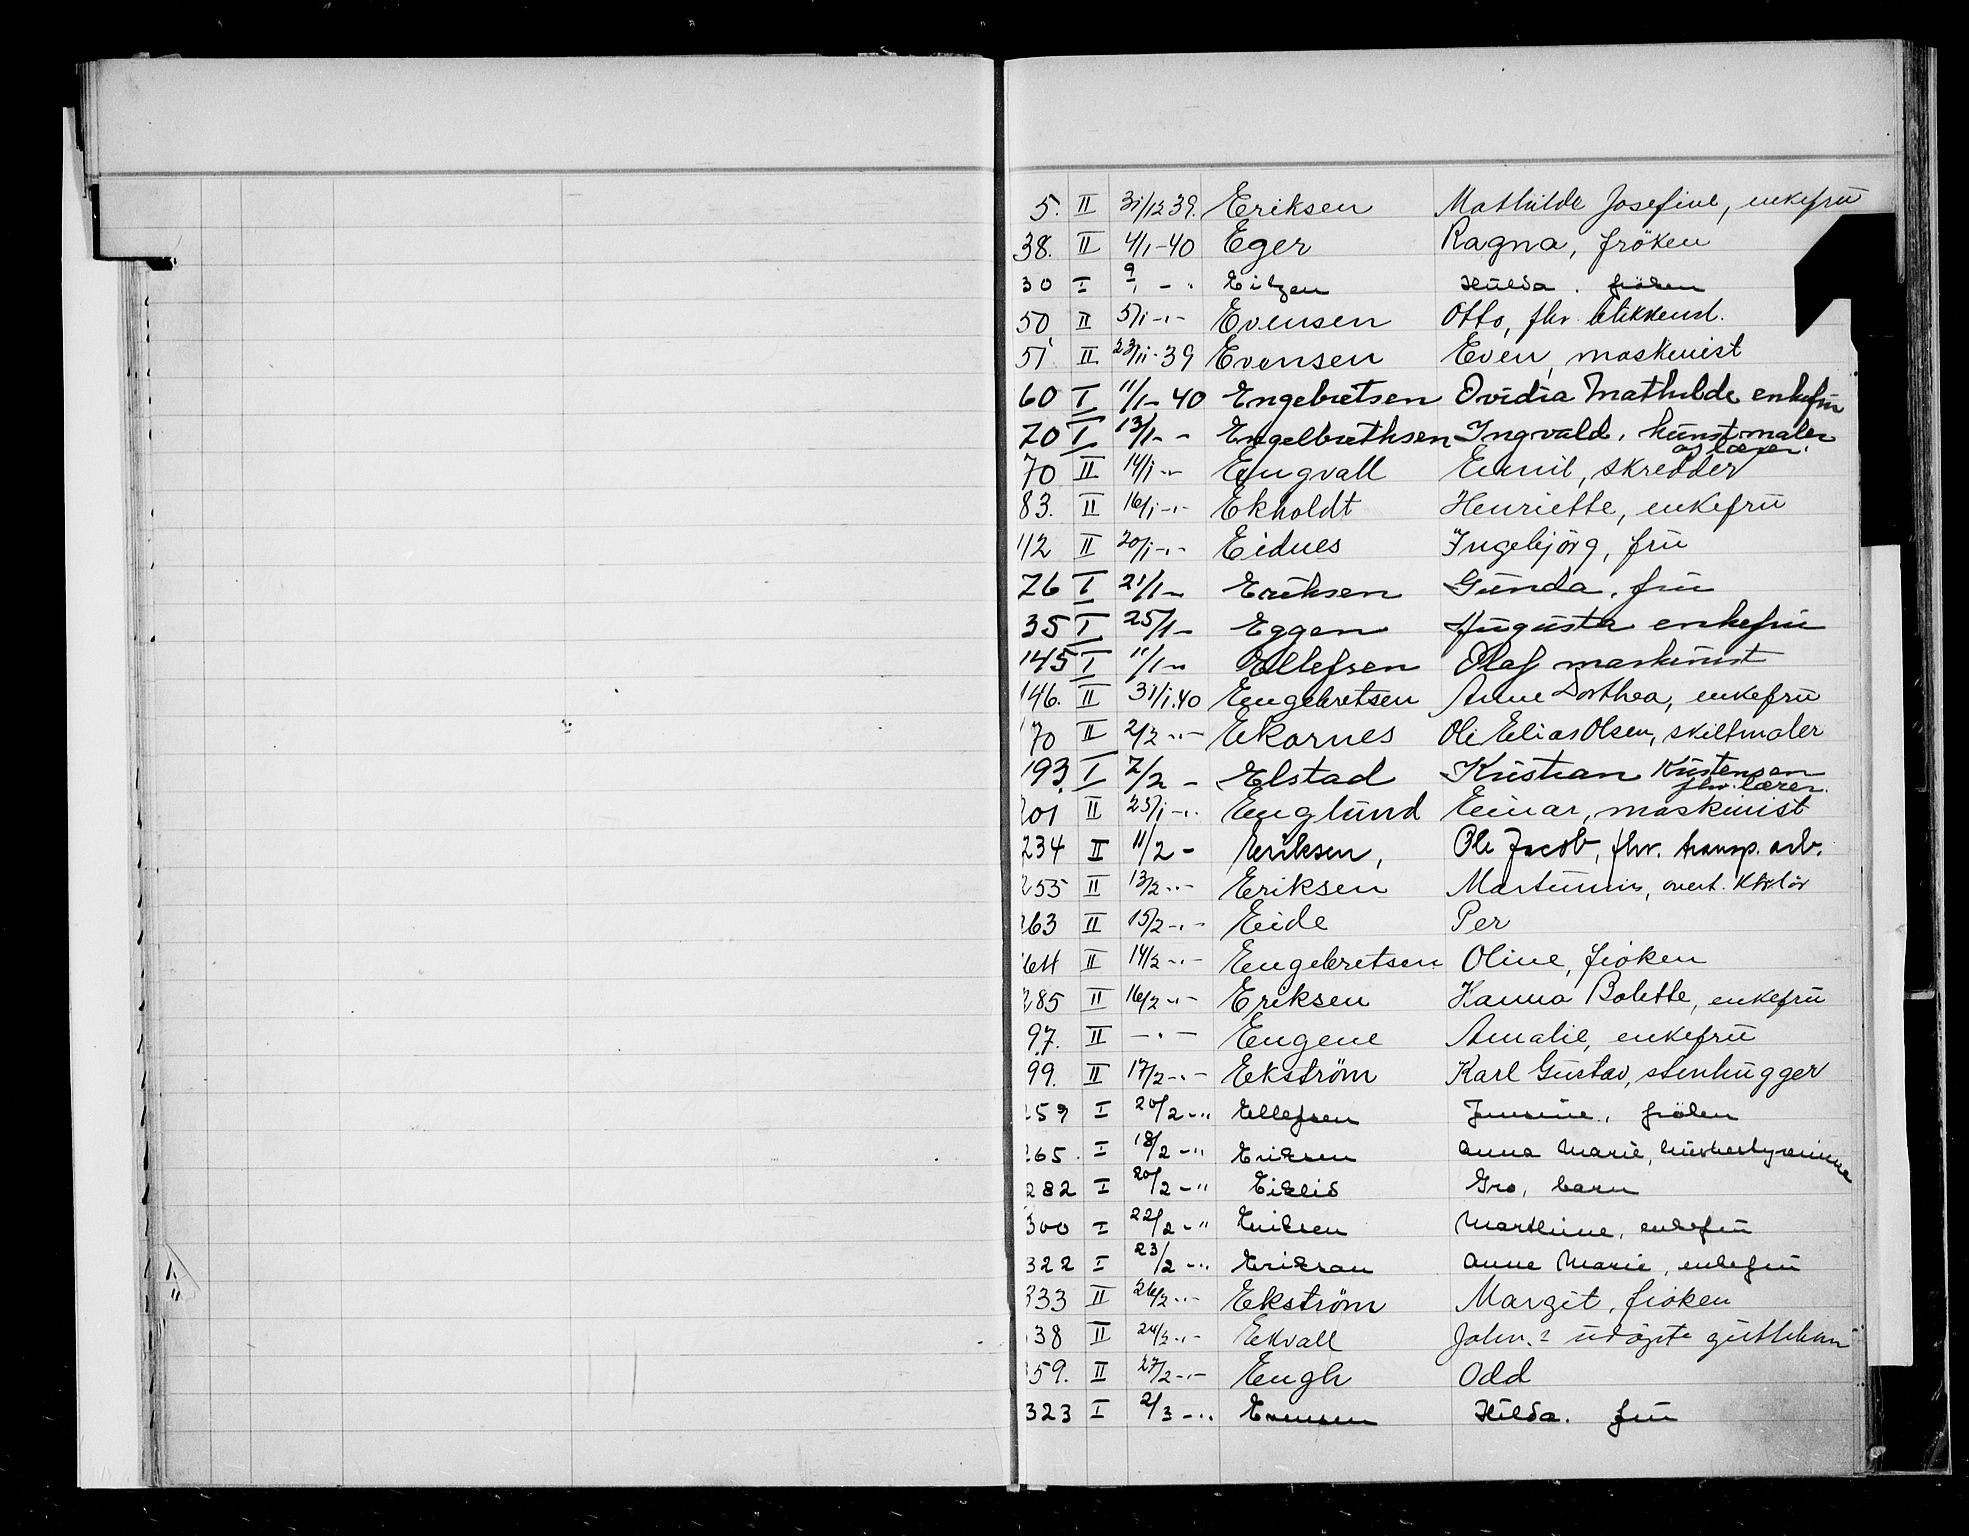 5. II 31/12 39. Eriksen Mathilde Josefine, enkefrü
38. II 4/1-40 Eger Ragna, fröken
30 I 9/1 - " Eitzen Hülda. fröken
50 II 5/1 -"- Evensen Otto, fhv. blikkensl.
51 II 23/11-39 Evensen Even, maskinist
60 I 11/1-40 Engebretsen Ovidia Mathilde enkefrü
70 I 13/1- - Engelbrethsen Ingvald, künstmaler
og lærer.
70 II 14/1 -"- Engvall Emil, skredder
83. II 16/1 -"- Ekholdt Henriette, enkefrü
112 II 20/1 -"- Eidnes Ingebjörg, frü
76 I 21/1 - Eriksen Günda, frü
35 I 25/1 - Eggen Aügüsta enkefrü
145 I 11/1 - Ellefsen Olaf maskinist
146. II 31/1.40 Engebretsen Anne Dorthea, enkefrü
170 II 2/2 -"- Ekornes Ole Elias Olsen, skiltmaler
193. I 7/2 - Elstad Kristian Kristensen
fhv. lærer.
201 II 25/1 -"- Englünd Einar, maskinist
234 II 11/2 - Eriksen, Ole Jacob, fhv. transp. arb.
255 II 13/2 -"- Eriksen Martinius, overt.
263 II 15/2 -"- Eide Per
264 II 14/2 -"- Engebretsen Oline, fröken
285 II 16/2 -"- Eriksen Hanna Bolette, enkefrü
97. II -"- Engene Amalie, enkefrü
99. II 17/2 -"- Ekström Karl Güstav, stenhügger
259 I 20/2 -" Ellefsen Jensine, fröken
265. I 18/2 -" Eriksen Anna Marie, hüsbestyrerinne
282 I 20/2 -" Eiklid Gro, barn
300 I 22/2 -" Eriksen Marthine, enkefrü
322 I 23/2 -" Eriksen Anne Marie, enkefrü
333 II 26/2 -"- Ekström Margit, fröken
338 II 24/2 -"- Ekvall John. 2 üdöpte güttebarn
359. II 27/2 -"- Engh Odd
323 I 2/3 -" Evensen Hilda. frü